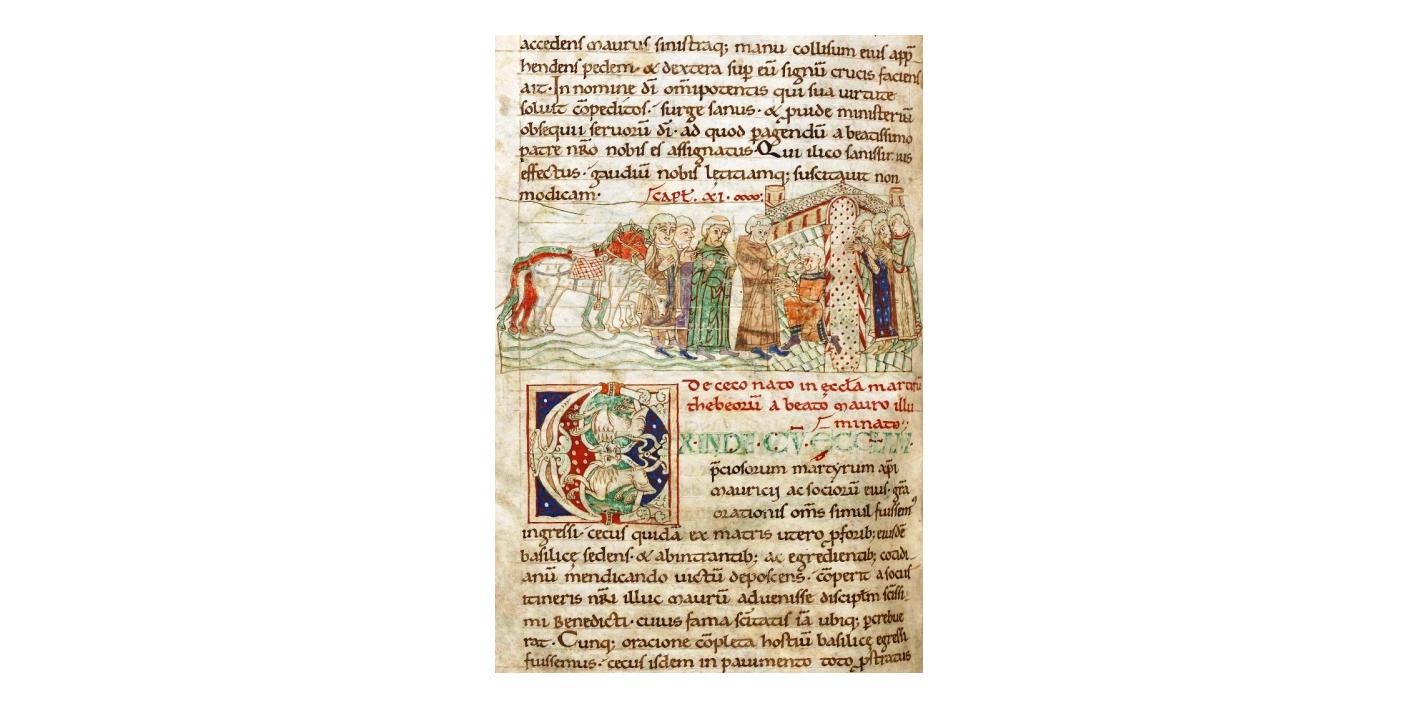 accedens maurus sinistraq; manu collisum eius app̄
hendens pedem· & dextera sup eū signū crucis faciens
ait· In nomine dī om̄ipotentis qui sua uirtute
soluit cōpeditos· surge sanus· & puide ministeriū
obsequii seruorū dī· ad quod pagendū a beatissimo
patre nr̄o nobis es assignatus· Qui ilico sanissimus
effectus· gaudiū nobis lętitiamq; suscitauit non
modicam·
Capt̄. XI·
De ceco nato in ęccła martirū
thebeorū a beato mauro illu
minato·
X· INDE· CŪ·
p̄ciosorum martyrum xp̄i
mauricij ac sociorū eius· grā
orationis om̄s simul fuissem⁹
ingressi· cecus quidā ex matris utero pforib; eiusdē
basilicę sedens· & abintrantib; ac egredientib; cotidi
anū mendicando uictū deposcens· cōperit a sociis
itineris nr̄i illuc maurū aduenisse discipłm sc̄issi
mi Benedicti· cuius fama sc̄itatis iā ubiq; pcrebue
rat· Cunq; oracione cōpleta hostiū basilicę egressi
fuissemus· cecus isdem in pauimento toto pstratus